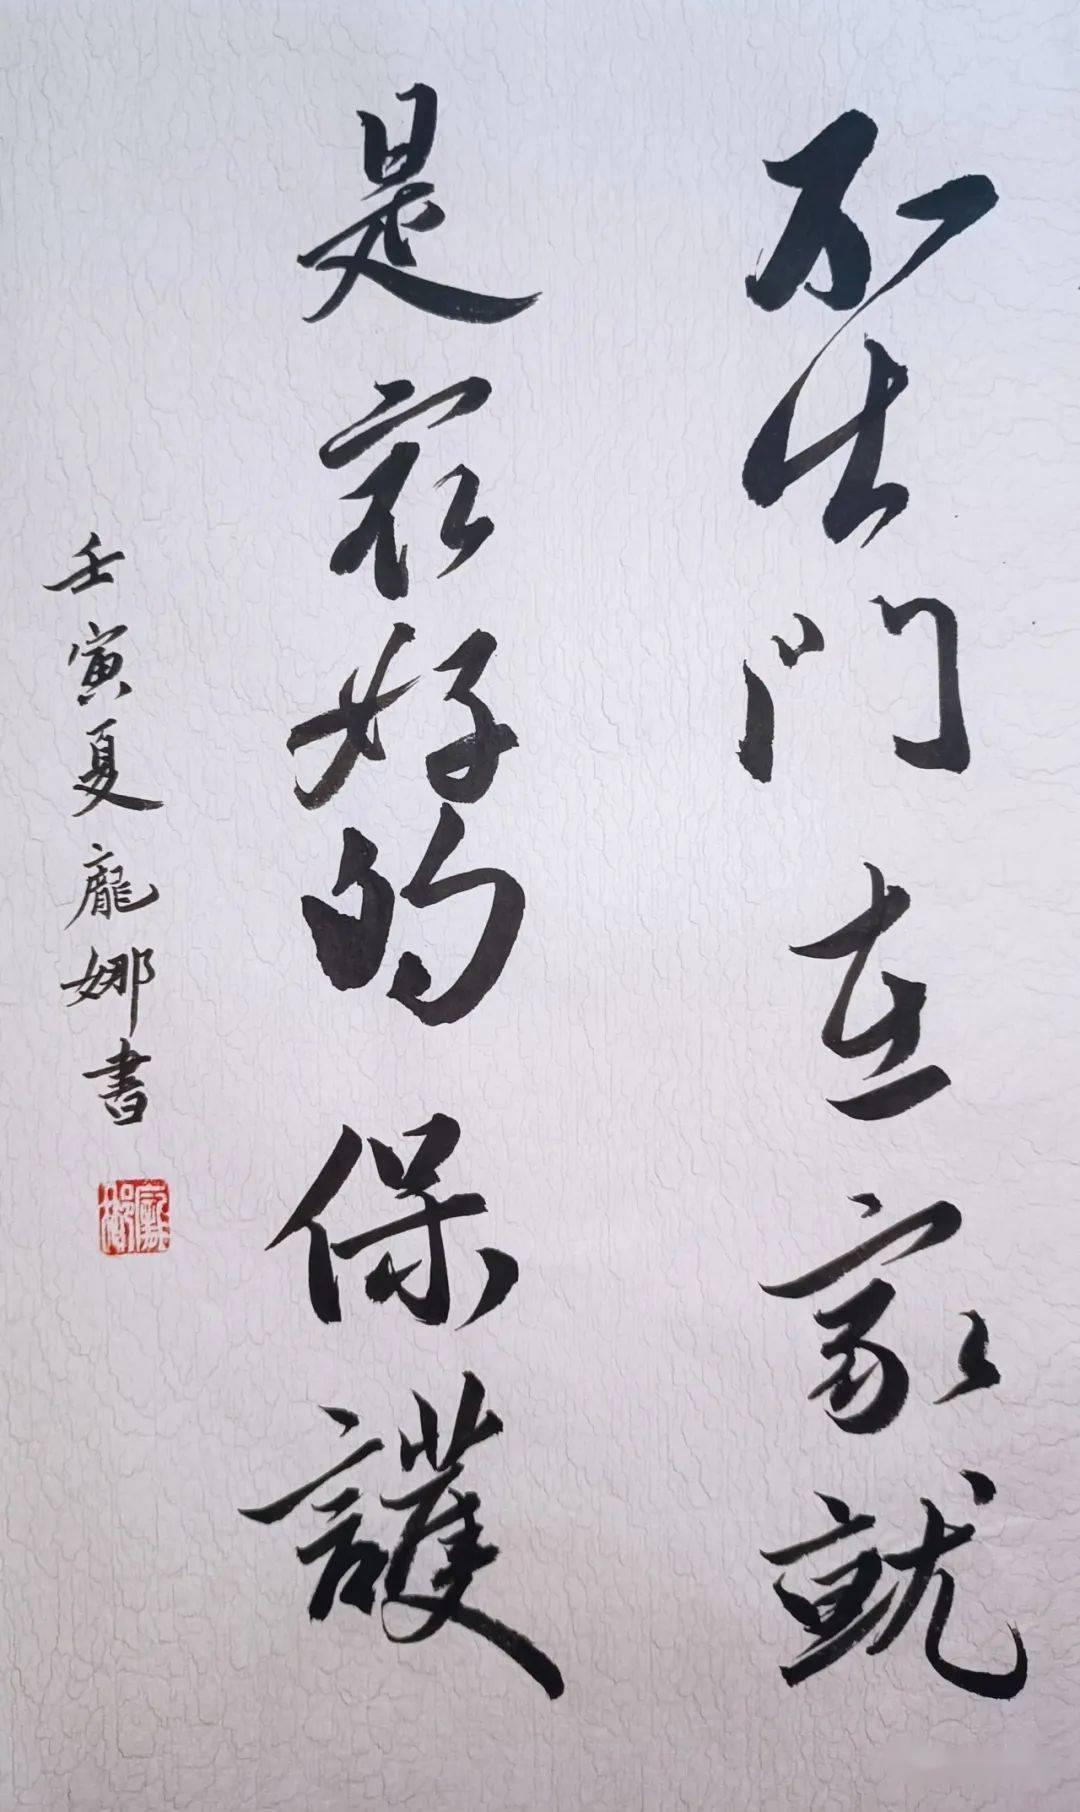 不出門在家就
是最好的保護
壬寅夏龐娜書